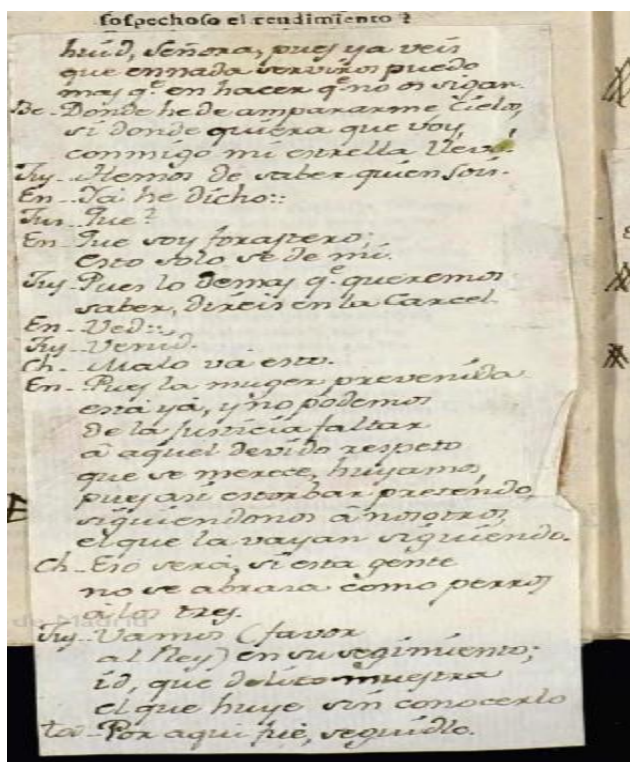 sospechoso el rendimiento?
huid, señora, pues ya veis
que en nada serviros puedo
mas q.e en hacer q.e no os sigan.
Be- Donde he de ampararme Cielos,
si donde quiera que voy,
conmigo mi estrella llevo!
Juj- Hemos de saber quien sois.
En- Ya he dicho::
Jus- Que?
En- Que soy forastero;
esto solo se de mi.
Jus- Pues lo demas q.e queremos
saber, direis en la Carcel.
En- Ved::
Jus- Venid.
Ch- Malo va esto.
En- Pues la muger prevenida
está yá, y no podemos
de la Justicia faltar
à aquel devido respeto
que se merece, huyamos,
pues asi estorbar pretendo,
siguiendonos à nosotros,
el que la vayan siguiendo.
Ch- Eso será, si esta gente
no se abrasa como perros
à los tres.
de Madrid
Jus- Vamos (favor
al Rey) en su segimiento;
id, que delito muestra
el que huye sin conocerlo
Tod- Por aqui fue, seguidlo.